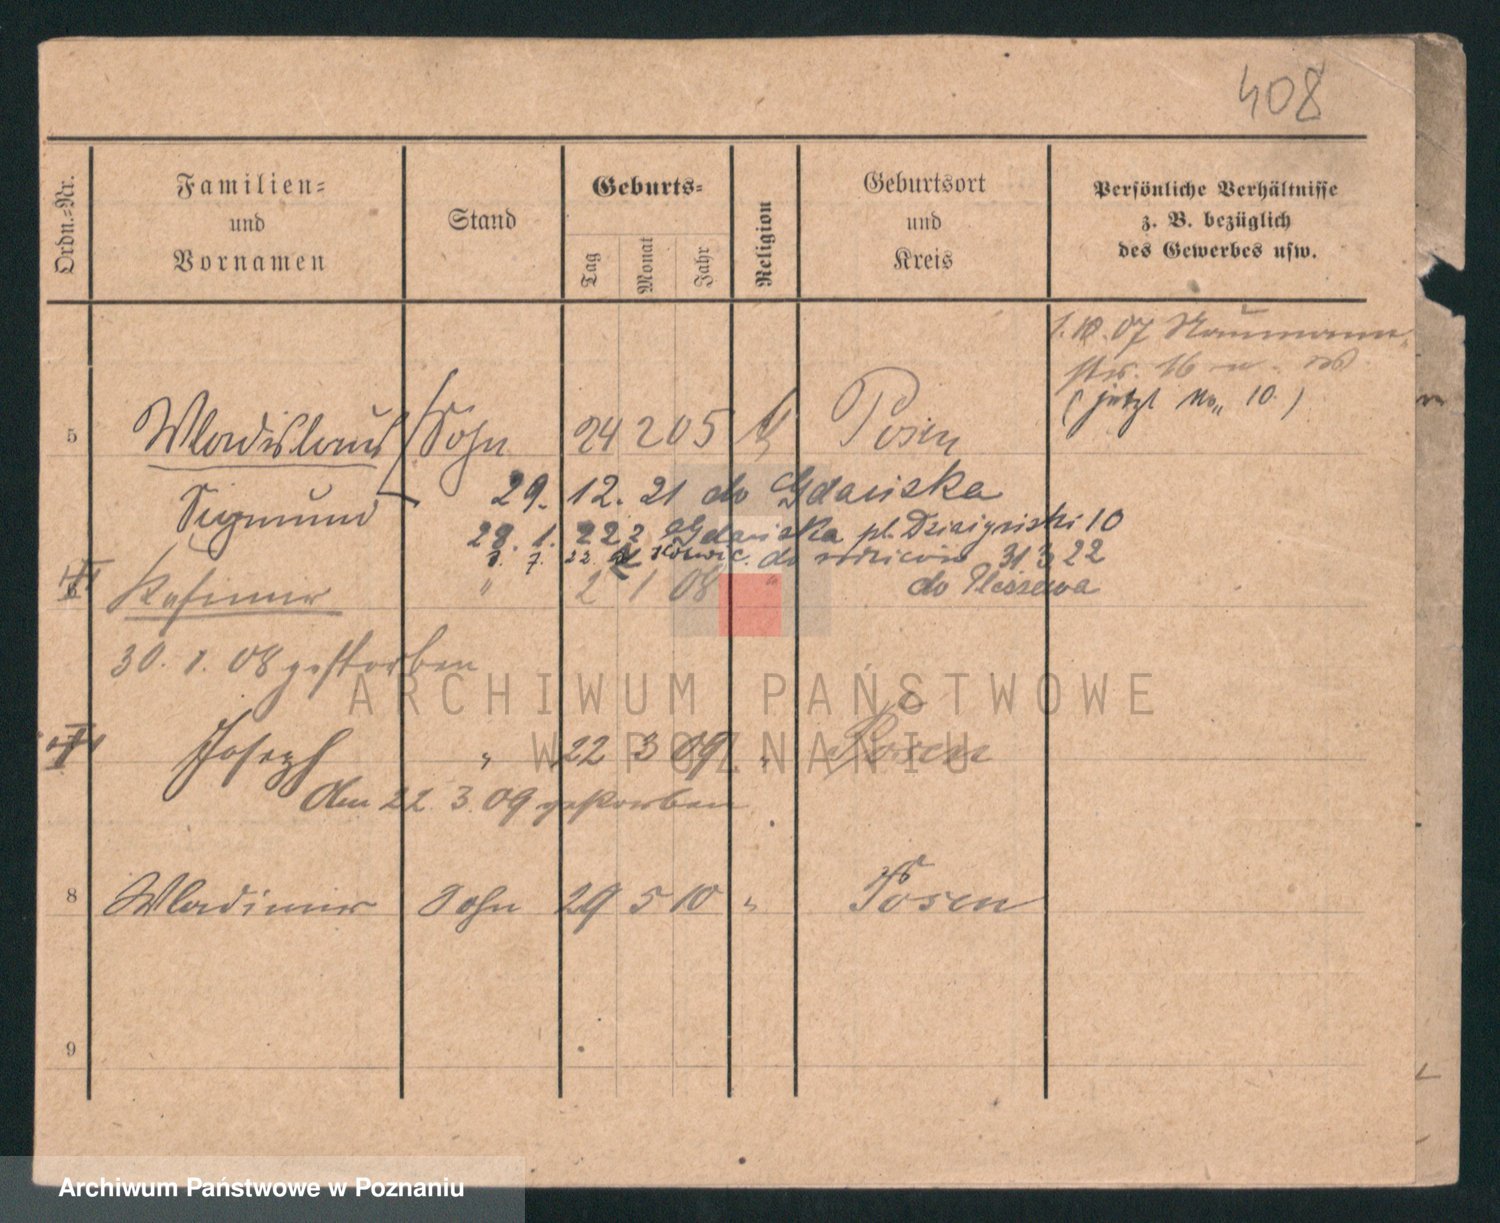 408
Ordn.=Nr.
Familien=
und
Vornamen
Stand
Geburts=
Tag
Monat
Jahr
Religion
Geburtsort
und
Kreis
Persönliche Verhältnisse
z. B. bezüglich
des Gewerbes usw.
1. 10. 07 Naumann
str. 16
(jetzt No 10.)
5 Wladislaus Sohn 24 2 05 k Posen
Sigmund
29. 12. 21 do Gdańska
28. 1. 22 z Gdańska pl. Działyński 10
3. 7. 22 do rodziców 31 3 22
6 Kasimir " 2 1 08 " do Pleszewa
30. 1. 08 gestorben
Joseph " 22 3 09 " Posen
den 22. 3. 09 gestorben
8 Wladimir Sohn 29 5 10 " Posen
9
ARCHIWUM PAŃSTWOWE
W POZNANIU
Archiwum Państwowe w Poznaniu